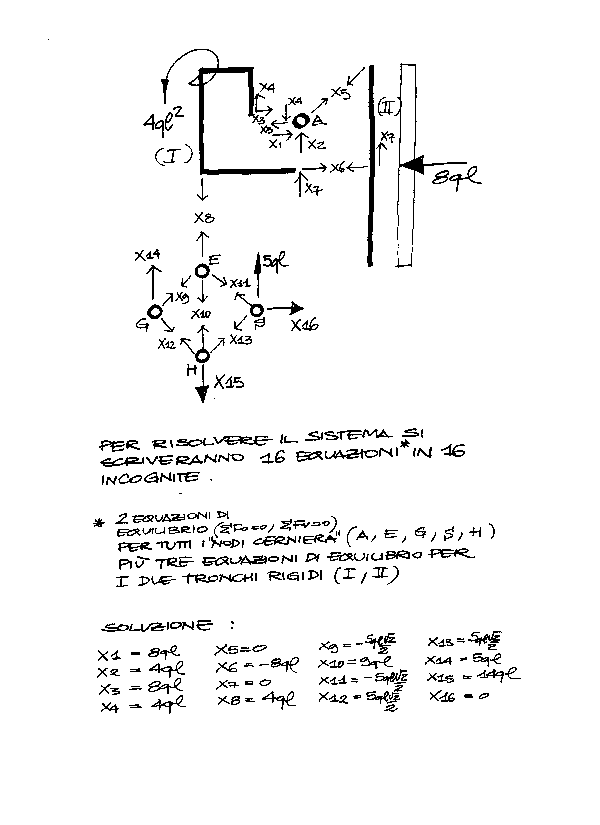 4ql²
(I)
X4
X4
X3
X3
X1
A
X2
X5
(II)
X7
X6
X7
8ql
X8
X14
E
5ql
X9
X11
X10
G
S
X16
X12
X13
H
X15
PER RISOLVERE IL SISTEMA SI
SCRIVERANNO 16 EQUAZIONI* IN 16
INCOGNITE.
* 2 EQUAZIONI DI
EQUILIBRIO (ΣFo=0, ΣFv=0)
PER TUTTI I "NODI CERNIERA" (A, E, G, S, H)
PIÙ TRE EQUAZIONI DI EQUILIBRIO PER
I DUE TRONCHI RIGIDI (I, II)
SOLUZIONE :
X1 = 8ql
X2 = 4ql
X3 = 8ql
X4 = 4ql
X5=0
X6 = -8ql
X7 = 0
X8 = 4ql
X9 = -5ql√2/2
X10 = 9ql
X11 = -5ql√2/2
X12 = 5ql√2/2
X13 = 5ql√2/2
X14 = 5ql
X15 = 14ql
X16 = 0